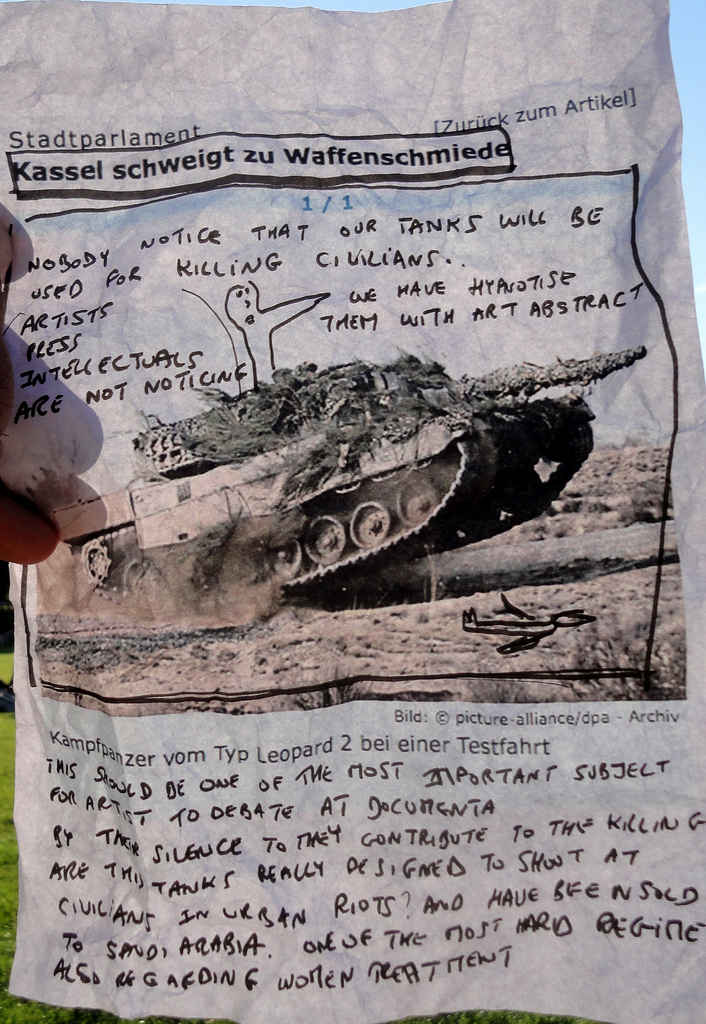 [Zurück zum Artikel]
Stadtparlament
Kassel schweigt zu Waffenschmiede
1 / 1
NOBODY NOTICE THAT OUR TANKS WILL BE
USED FOR KILLING CIVILIANS..
ARTISTS
PRESS
INTELLECTUALS
ARE NOT NOTICING
WE HAVE HYPNOTISE
THEM WITH ART ABSTRACT
Bild: © picture-alliance/dpa - Archiv
Kampfpanzer vom Typ Leopard 2 bei einer Testfahrt
THIS SHOULD BE ONE OF THE MOST IMPORTANT SUBJECT
FOR ARTIST TO DEBATE AT DOCUMENTA
BY THEIR SILENCE TO THEY CONTRIBUTE TO THE KILLING
ARE THIS TANKS REALLY DESIGNED TO SHOOT AT
CIVILIANS IN URBAN RIOTS? AND HAVE BEEN SOLD
TO SAUDI ARABIA. ONE OF THE MOST HARD REGIME
ALSO REGARDING WOMEN TREATMENT